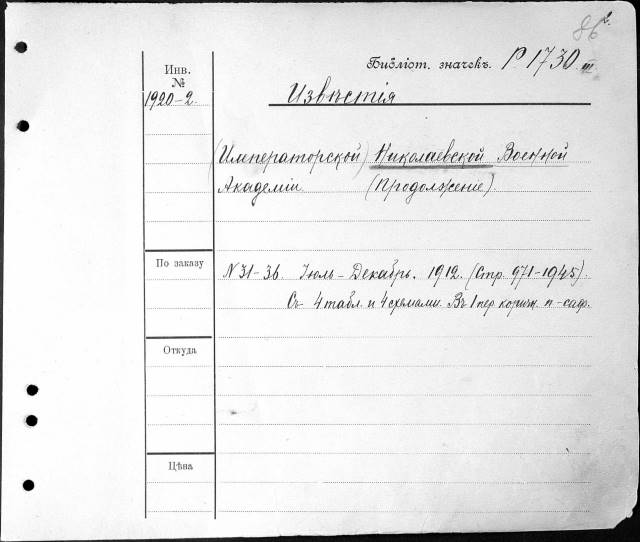 86 2.
Библіот. значекъ. Р 1730 III.
Инв.
№
1920-2.
Извѣстія
(Императорской) Николаевской Военной
Академіи (Продолженіе)
По заказу
N 31-36. Іюль-Декабрь. 1912. (Стр. 971-1945).
Съ 4 табл. и 4 схемами. Въ 1 пер. коричн. п-саф.
Откуда
Цѣна